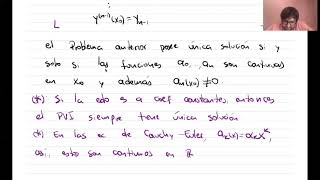 ⋮
y^(n-1)(x₀) = y_{n-1}
L
el problema anterior posee única solución si y
solo si las funciones a₀,...,aₙ son continuas
en x₀ y además aₙ(x₀) ≠ 0.
(*) Si la edo es a coef constantes, entonces
el PVI siempre tiene única solución
(*) En las ec de Cauchy-Euler, aₖ(x) = αₖxᵏ,
así, estos son continuos en ℝ